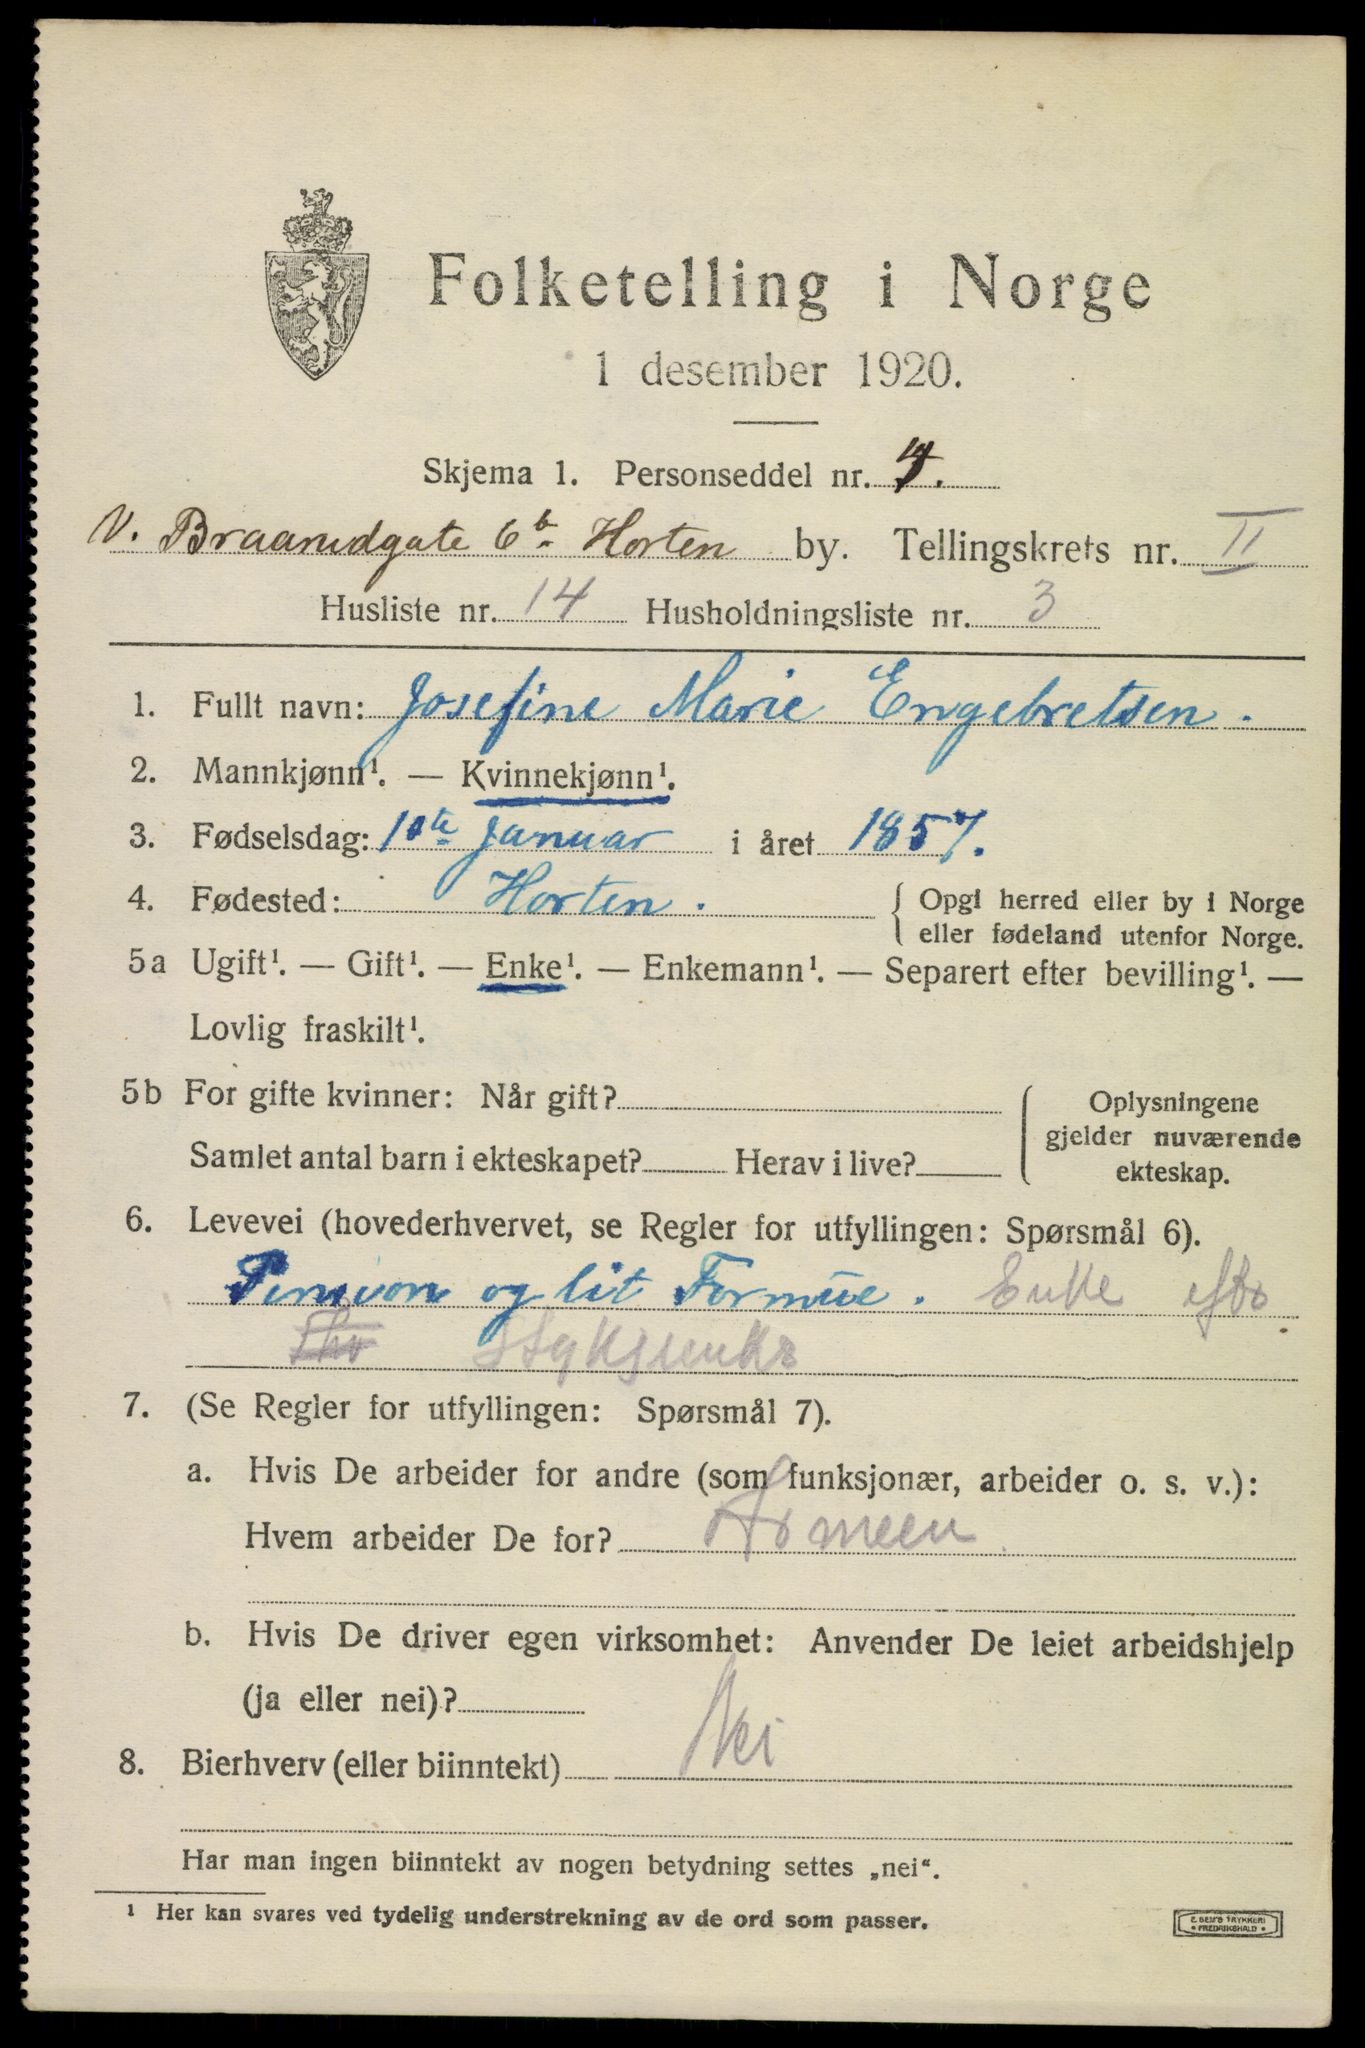 Folketelling i Norge
1 desember 1920.
Skjema 1. Personseddel nr.
V. Braarudgate 6b Horten by. Tellingskrets nr. II
Husliste nr. 14 Husholdningsliste nr. 3
1. Fullt navn: Josefine Marie Engebretsen.
2. Mannkjønn¹. — Kvinnekjønn¹.
3. Fødselsdag: januar i året 1857.
4. Fødested: Horten. { Opgi herred eller by i Norge
eller fødeland utenfor Norge.
5a Ugift¹. — Gift¹. — Enke¹. — Enkemann¹. — Separert efter bevilling¹. —
Lovlig fraskilt¹.
5b For gifte kvinner: Når gift? { Oplysningene
gjelder nuværende
Samlet antal barn i ekteskapet? Herav i live?
ekteskap.
6. Levevei (hovederhvervet, se Regler for utfyllingen: Spørsmål 6).
Pension og lit Formue. Enke
7. (Se Regler for utfyllingen: Spørsmål 7).
a. Hvis De arbeider for andre (som funksjonær, arbeider o. s. v.):
Hvem arbeider De for? Armeen
b. Hvis De driver egen virksomhet: Anvender De leiet arbeidshjelp
(ja eller nei)?
8. Bierhverv (eller biinntekt) Nei
Har man ingen biinntekt av nogen betydning settes „nei“.
¹ Her kan svares ved tydelig understrekning av de ord som passer.
E. SEM'S TRYKKERI
• FREDRIKSHALD •